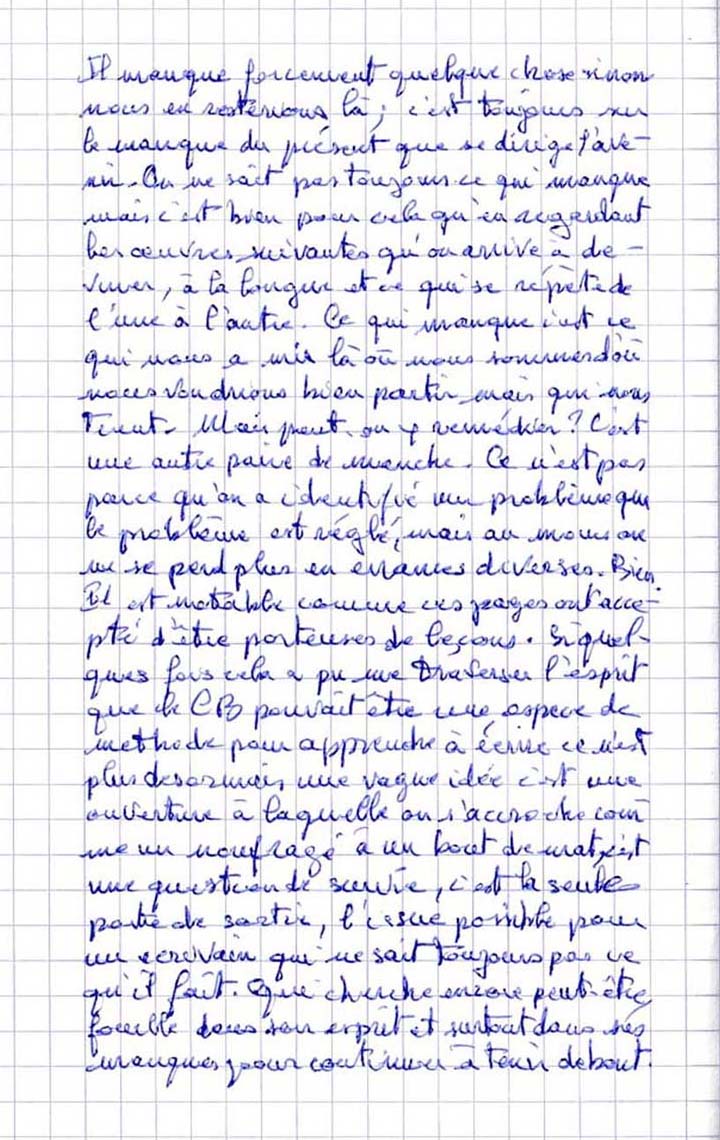 Il manque forcement quelque chose sinon
nous en resterions là ; c'est toujours sur
le manque du présent que se dirige l'ave-
nir. On ne sait pas toujours ce qui manque
mais c'est bien pour cela qu'en regardant
les œuvres suivantes qu'on arrive à de-
viner, à la longue et ce qui se répète de
l'une à l'autre. Ce qui manque c'est ce
qui nous a mis là où nous sommes d'où
nous voudrions bien partir mais qui nous
tient. Mais peut on y remédier ? C'est
une autre paire de manche. Ce n'est pas
parce qu'on a identifié un problème que
le problème est réglé, mais au moins on
ne se perd plus en errances diverses. Bien
Il est notable comme ces pages ont acce-
pté d'être porteuses de leçons. Si quel-
ques fois cela a pu me traverser l'esprit
que le CB pouvait être une espece de
methode pour apprendre à écrire ce n'est
plus desormais une vague idée c'est une
ouverture à laquelle on s'accroche com
me un naufragé à un bout de mat, c'est
une question de survie, c'est la seule
porte de sortie, l'issue possible pour
un ecrivain qui ne sait toujours pas ce
qu'il fait. Que cherche encore peut-être
fouille dans son esprit et surtout dans ses
manques pour continuer à tenir debout.